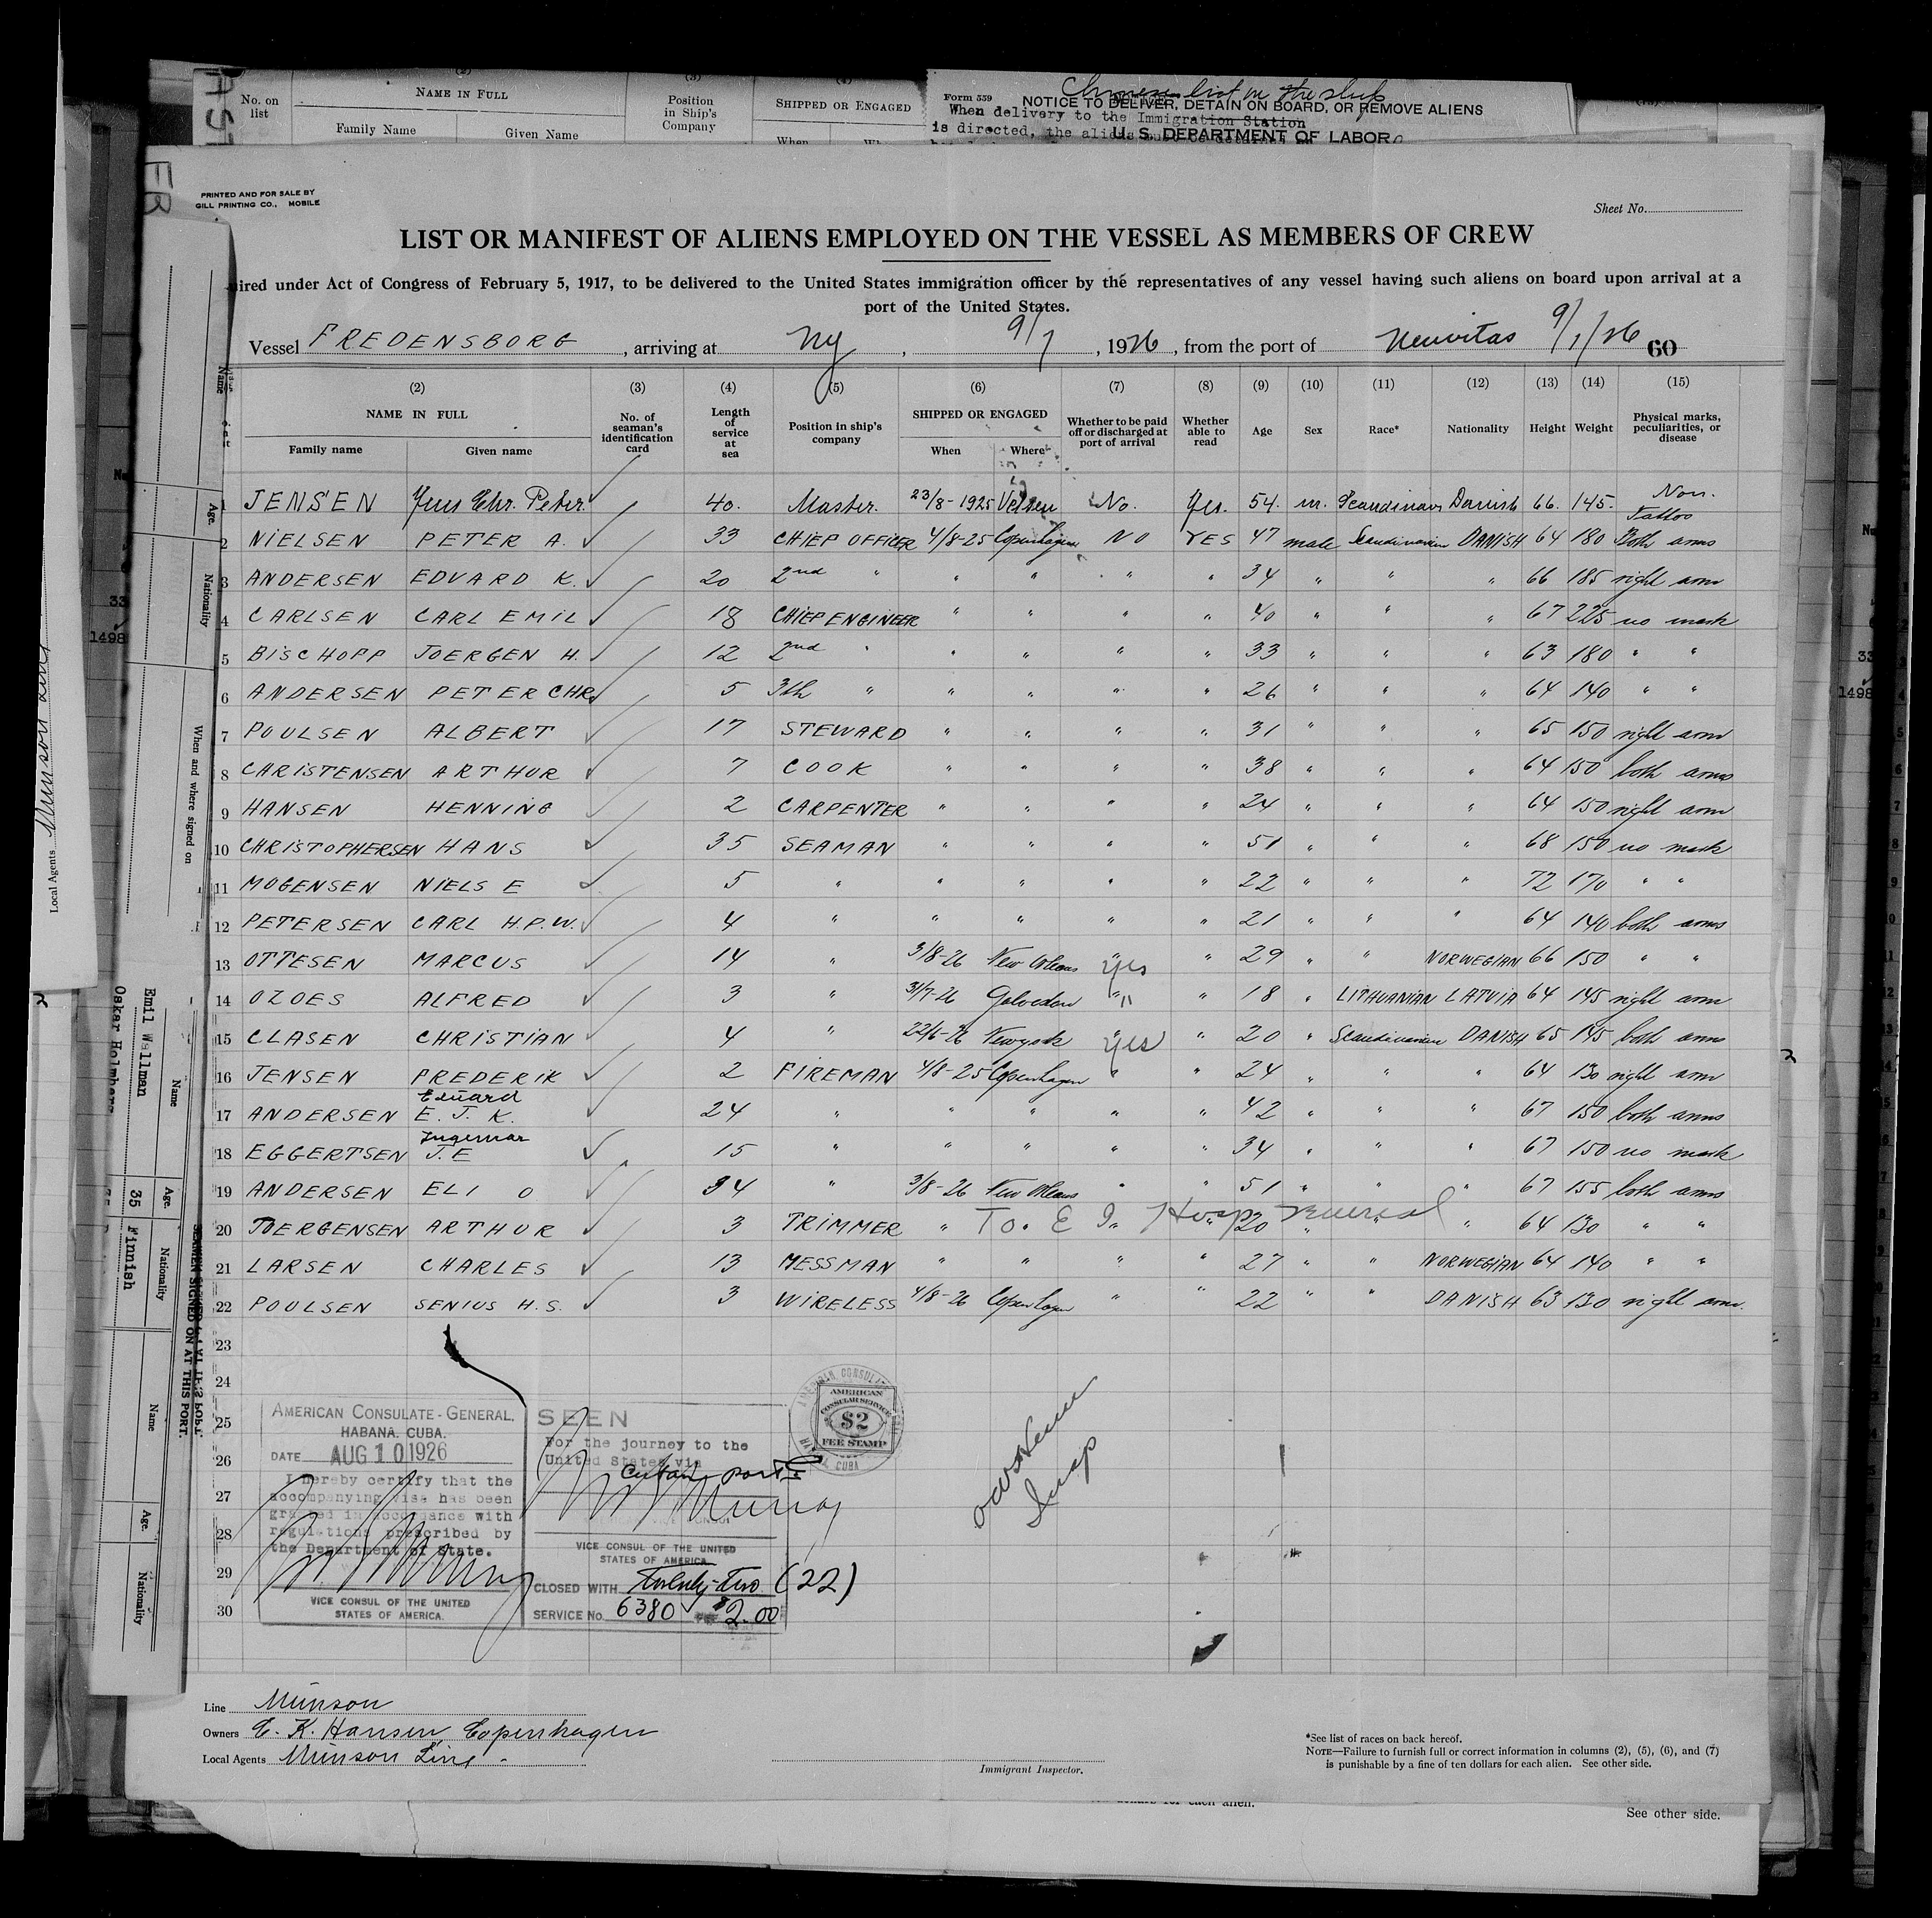 No. on list
NAME IN FULL
Family Name Given Name
Position in Ship's Company
SHIPPED OR ENGAGED
When
Form 559
NOTICE TO DELIVER, DETAIN ON BOARD, OR REMOVE ALIENS
When delivery to the Immigration Station
is directed, the aliens
U. S. DEPARTMENT OF LABOR
PRINTED AND FOR SALE BY
GILL PRINTING CO., MOBILE
Sheet No.
LIST OR MANIFEST OF ALIENS EMPLOYED ON THE VESSEL AS MEMBERS OF CREW
ired under Act of Congress of February 5, 1917, to be delivered to the United States immigration officer by the representatives of any vessel having such aliens on board upon arrival at a
port of the United States.
Vessel FREDENSBORG, arriving at NY, 9/7, 1926, from the port of Nuevitas 9/1/26 60
(2) (3) (4) (5) (6) (7) (8) (9) (10) (11) (12) (13) (14) (15)
NAME IN FULL
Family name Given name
No. of seaman's identification card
Length of service at sea
Position in ship's company
SHIPPED OR ENGAGED
When Where
Whether to be paid off or discharged at port of arrival
Whether able to read
Age Sex Race* Nationality Height Weight
Physical marks, peculiarities, or disease
1 JENSEN Jens Chr. Peter 40. Master. 23/8-1925 Velsen No. Yes. 54. m. Scandinavn Danish 66. 145. Non.
Tattoo
2 NIELSEN PETER A. 33 CHIEF OFFICER 4/8-25 Copenhagen NO YES 47 male Scandinavian DANISH 64 180 Both arms
3 ANDERSEN EDVARD K. 20 2nd " " " " " 34 " " " 66 185 right arm
4 CARLSEN CARL EMIL 18 CHIEF ENGINEER " " " " 40 " " " 67 225 no mark
5 BISCHOFF JOERGEN H. 12 2nd " " " " " 33 " " " 63 180 " "
6 ANDERSEN PETER CHR. 5 3th " " " " " 26 " " " 64 140 " "
7 POULSEN ALBERT 17 STEWARD " " " " 31 " " " 65 150 right arm
8 CHRISTENSEN ARTHUR 7 COOK " " " " 38 " " " 64 150 both arms
9 HANSEN HENNING 2 CARPENTER " " " " 24 " " " 64 150 right arm
10 CHRISTOPHERSEN HANS 35 SEAMAN " " " " 51 " " " 68 150 no mark
11 MOGENSEN NIELS E 5 " " " " " 22 " " " 72 170 " "
12 PETERSEN CARL H.P.W. 4 " " " " " 21 " " " 64 140 both arms
13 OTTESEN MARCUS 14 " 3/8-26 New Orleans Yes " 29 " " NORWEGIAN 66 150 " "
14 OZOES ALFRED 3 " 3/7-26 " " 18 " LITHUANIAN LATVIA 64 145 right arm
15 CLASEN CHRISTIAN 4 " 22/6-26 Newyork Yes " 20 " Scandinavian DANISH 65 145 both arms
16 JENSEN FREDERIK 2 FIREMAN 4/8-25 Copenhagen " " 24 " " " 64 130 right arm
Eduard
17 ANDERSEN E. J. K. 24 " " " " " 42 " " " 67 150 both arms
Ingemar
18 EGGERTSEN J. E 15 " " " " " 34 " " " 67 150 no mark
19 ANDERSEN ELI O 34 " 3/8-26 New Orleans " " 51 " " " 67 155 both arms
20 JOERGENSEN ARTHUR 3 TRIMMER " To E I Hosp " 20 " Venereal " 64 130 " "
21 LARSEN CHARLES 13 MESSMAN " " " " 27 " " NORWEGIAN 64 140 " "
22 POULSEN SENIUS H.S. 3 WIRELESS 4/8-26 Copenhagen " " 22 " " DANISH 63 130 right arm.
23
24
25
26
27
28
29
30
AMERICAN CONSULATE-GENERAL.
HABANA. CUBA.
DATE AUG 10 1926
I hereby certify that the
accompanying visa has been
granted in accordance with
regulations prescribed by
the Department of State.
VICE CONSUL OF THE UNITED
STATES OF AMERICA.
SEEN
For the journey to the
United States via
Cuban ports
Murray
VICE CONSUL OF THE UNITED
STATES OF AMERICA
CLOSED WITH Twenty-Two (22)
SERVICE No. 6380 $2.00
AMERICAN CONSULAR SERVICE
$2
FEE STAMP
Insp
Line Munson
Owners C. K. Hansen, Copenhagen
Local Agents Munson Line -
Immigrant Inspector.
*See list of races on back hereof.
NOTE—Failure to furnish full or correct information in columns (2), (5), (6), and (7)
is punishable by a fine of ten dollars for each alien. See other side.
See other side.
Local Agents Munson Line
Name
Age.
Nationality
When and where signed on
Emil Wallman 35 Finnish
Oskar Holmberg
SEAMEN SIGNED ON AT THIS PORT.
Name
Age.
Nationality
33
1498